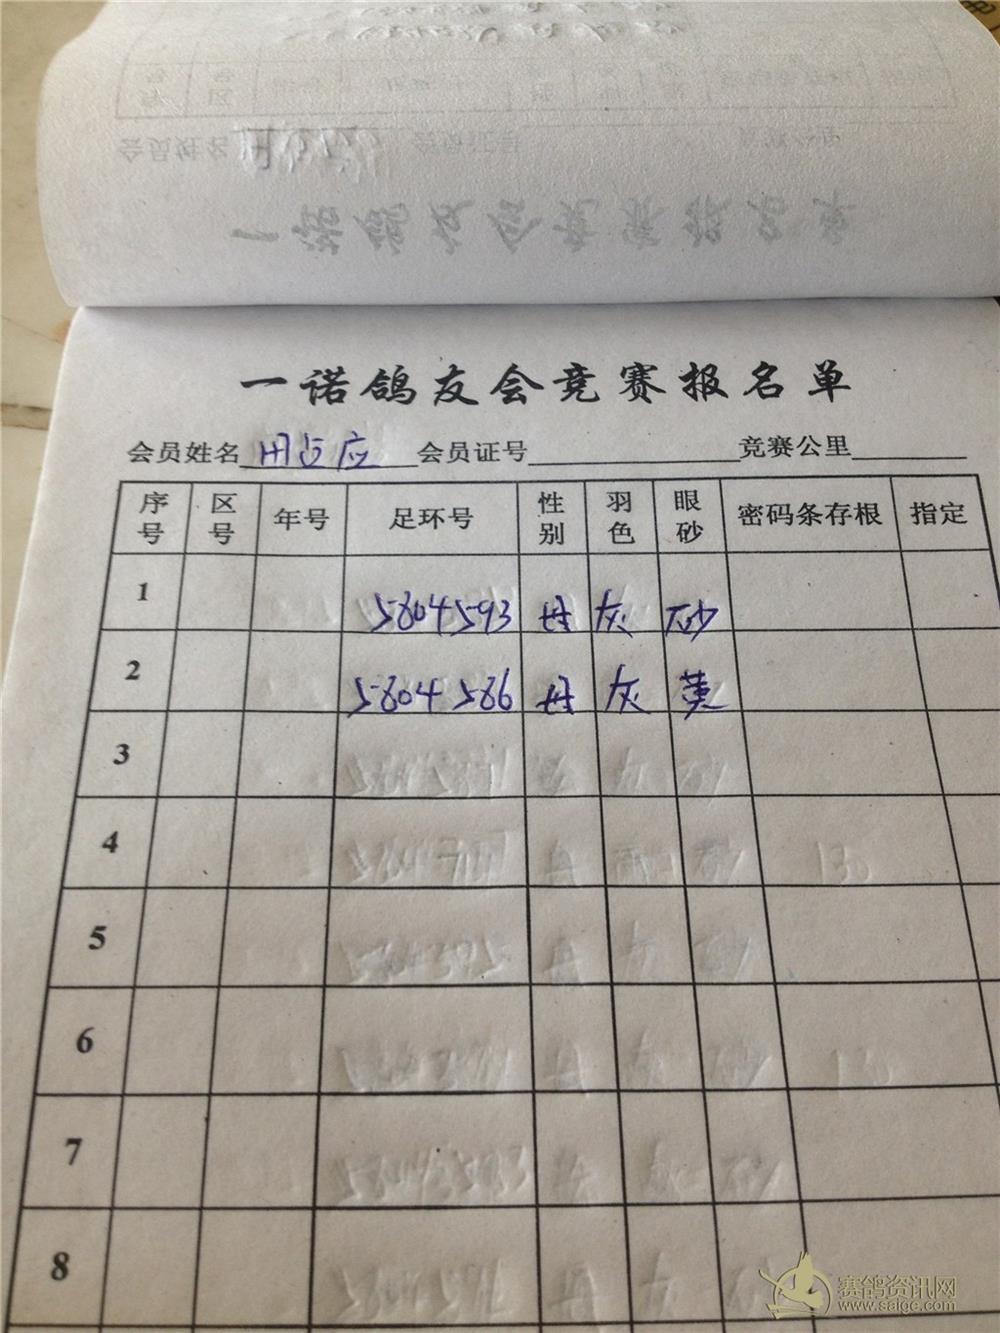 一诺鸽友会竞赛报名单
会员姓名 田占应 会员证号 竞赛公里
序号 区号 年号 足环号 性别 羽色 眼砂 密码条存根 指定
1 5804593 母 灰 砂
2 5804586 母 灰 黄
3
4
5
6
7
8
赛鸽资讯网
www.saige.com